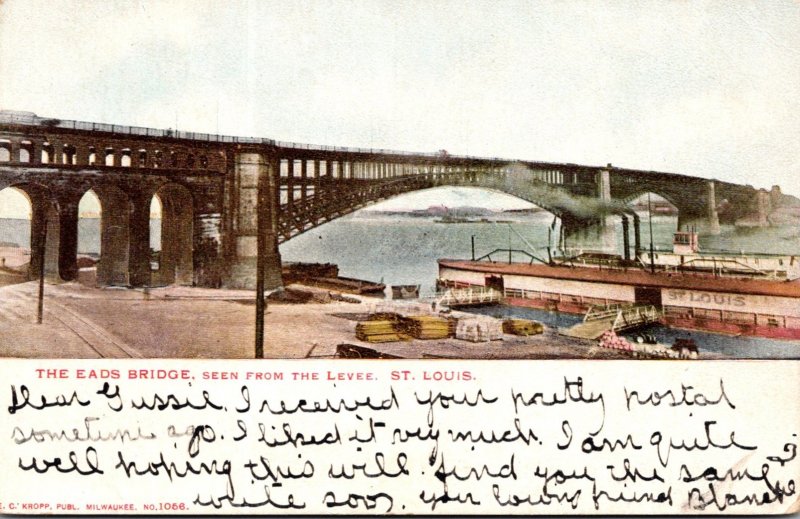 ST LOUIS
THE EADS BRIDGE, SEEN FROM THE LEVEE. ST. LOUIS.
Dear Gussie, I received your pretty postal
sometime ago. I liked it very much. I am quite
well hoping this will find you the same
write soon. your loving friend Blanche
E. C. KROPP, PUBL. MILWAUKEE. NO. 1056.